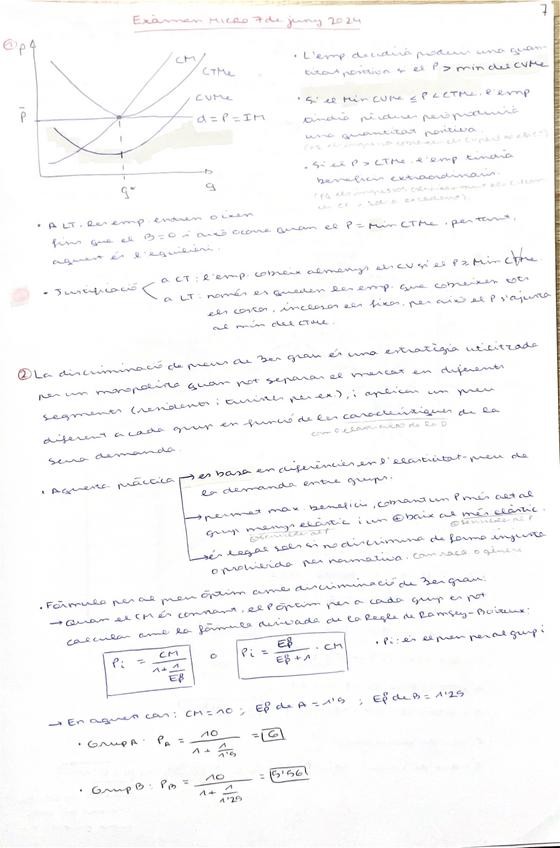 7
Exàmen MICRO 7 de juny 2024
① P
CM
CTMe
CVMe
P̄
d = P = IM
q*
q
• L'emp decidirà produir una quan-
titat positiva si el P > min del CVMe
• Si el Min CVMe ≤ P < CTMe, l'emp
tindrà pèrdues però produirà
una quantitat positiva.
• Si el P > CTMe, l'emp tindrà
beneficis extraordinaris.
• A LT, les emp. entren o ixen
fins que el B=0 i això ocorre quan el P = Min CTMe, per tant,
aquest és l'equilibri.
• Justificació
a CT: l'emp. cobreix almenys els CV si el P ≥ Min CVMe
a LT: només es queden les emp. que cobreixen tots
els costos, inclosos els fixos, per això el P s'ajusta
al min del CTMe.
② La discriminació de preus de 3er grau és una estratègia utilitzada
per un monopolista quan pot separar el mercat en diferents
segments (residents i turistes per ex.), i aplicar un preu
diferent a cada grup en funció de les característiques de la
seua demanda.
com l'elasticitat de la D
• Aquesta pràctica
→ es basa en diferències en l'elasticitat-preu de
la demanda entre grups.
→ permet max. benefici, cobrant un P més alt al
grup menys elàstic i un + baix al més elàstic.
→ és legal sols si no discrimina de forma injusta
o prohibida per normativa. com raça o gènere
• Fórmula per al preu òptim amb discriminació de 3er grau:
→ Quan el CM és constant, el P òptim per a cada grup es pot
calcular amb la fórmula derivada de la Regla de Ramsey-Boiteux:
Pi = CM / (1 + 1/Eβ) o Pi = Eβ / (Eβ + 1) · CM
• Pi: és el preu per al grup i
→ En aquest cas: CM = 10 ; Eβ de A = 1'5 ; Eβ de B = 1'25
• Grup A: PA = 10 / (1 + 1/1'5) = 6
• Grup B: PB = 10 / (1 + 1/1'25) = 5'56